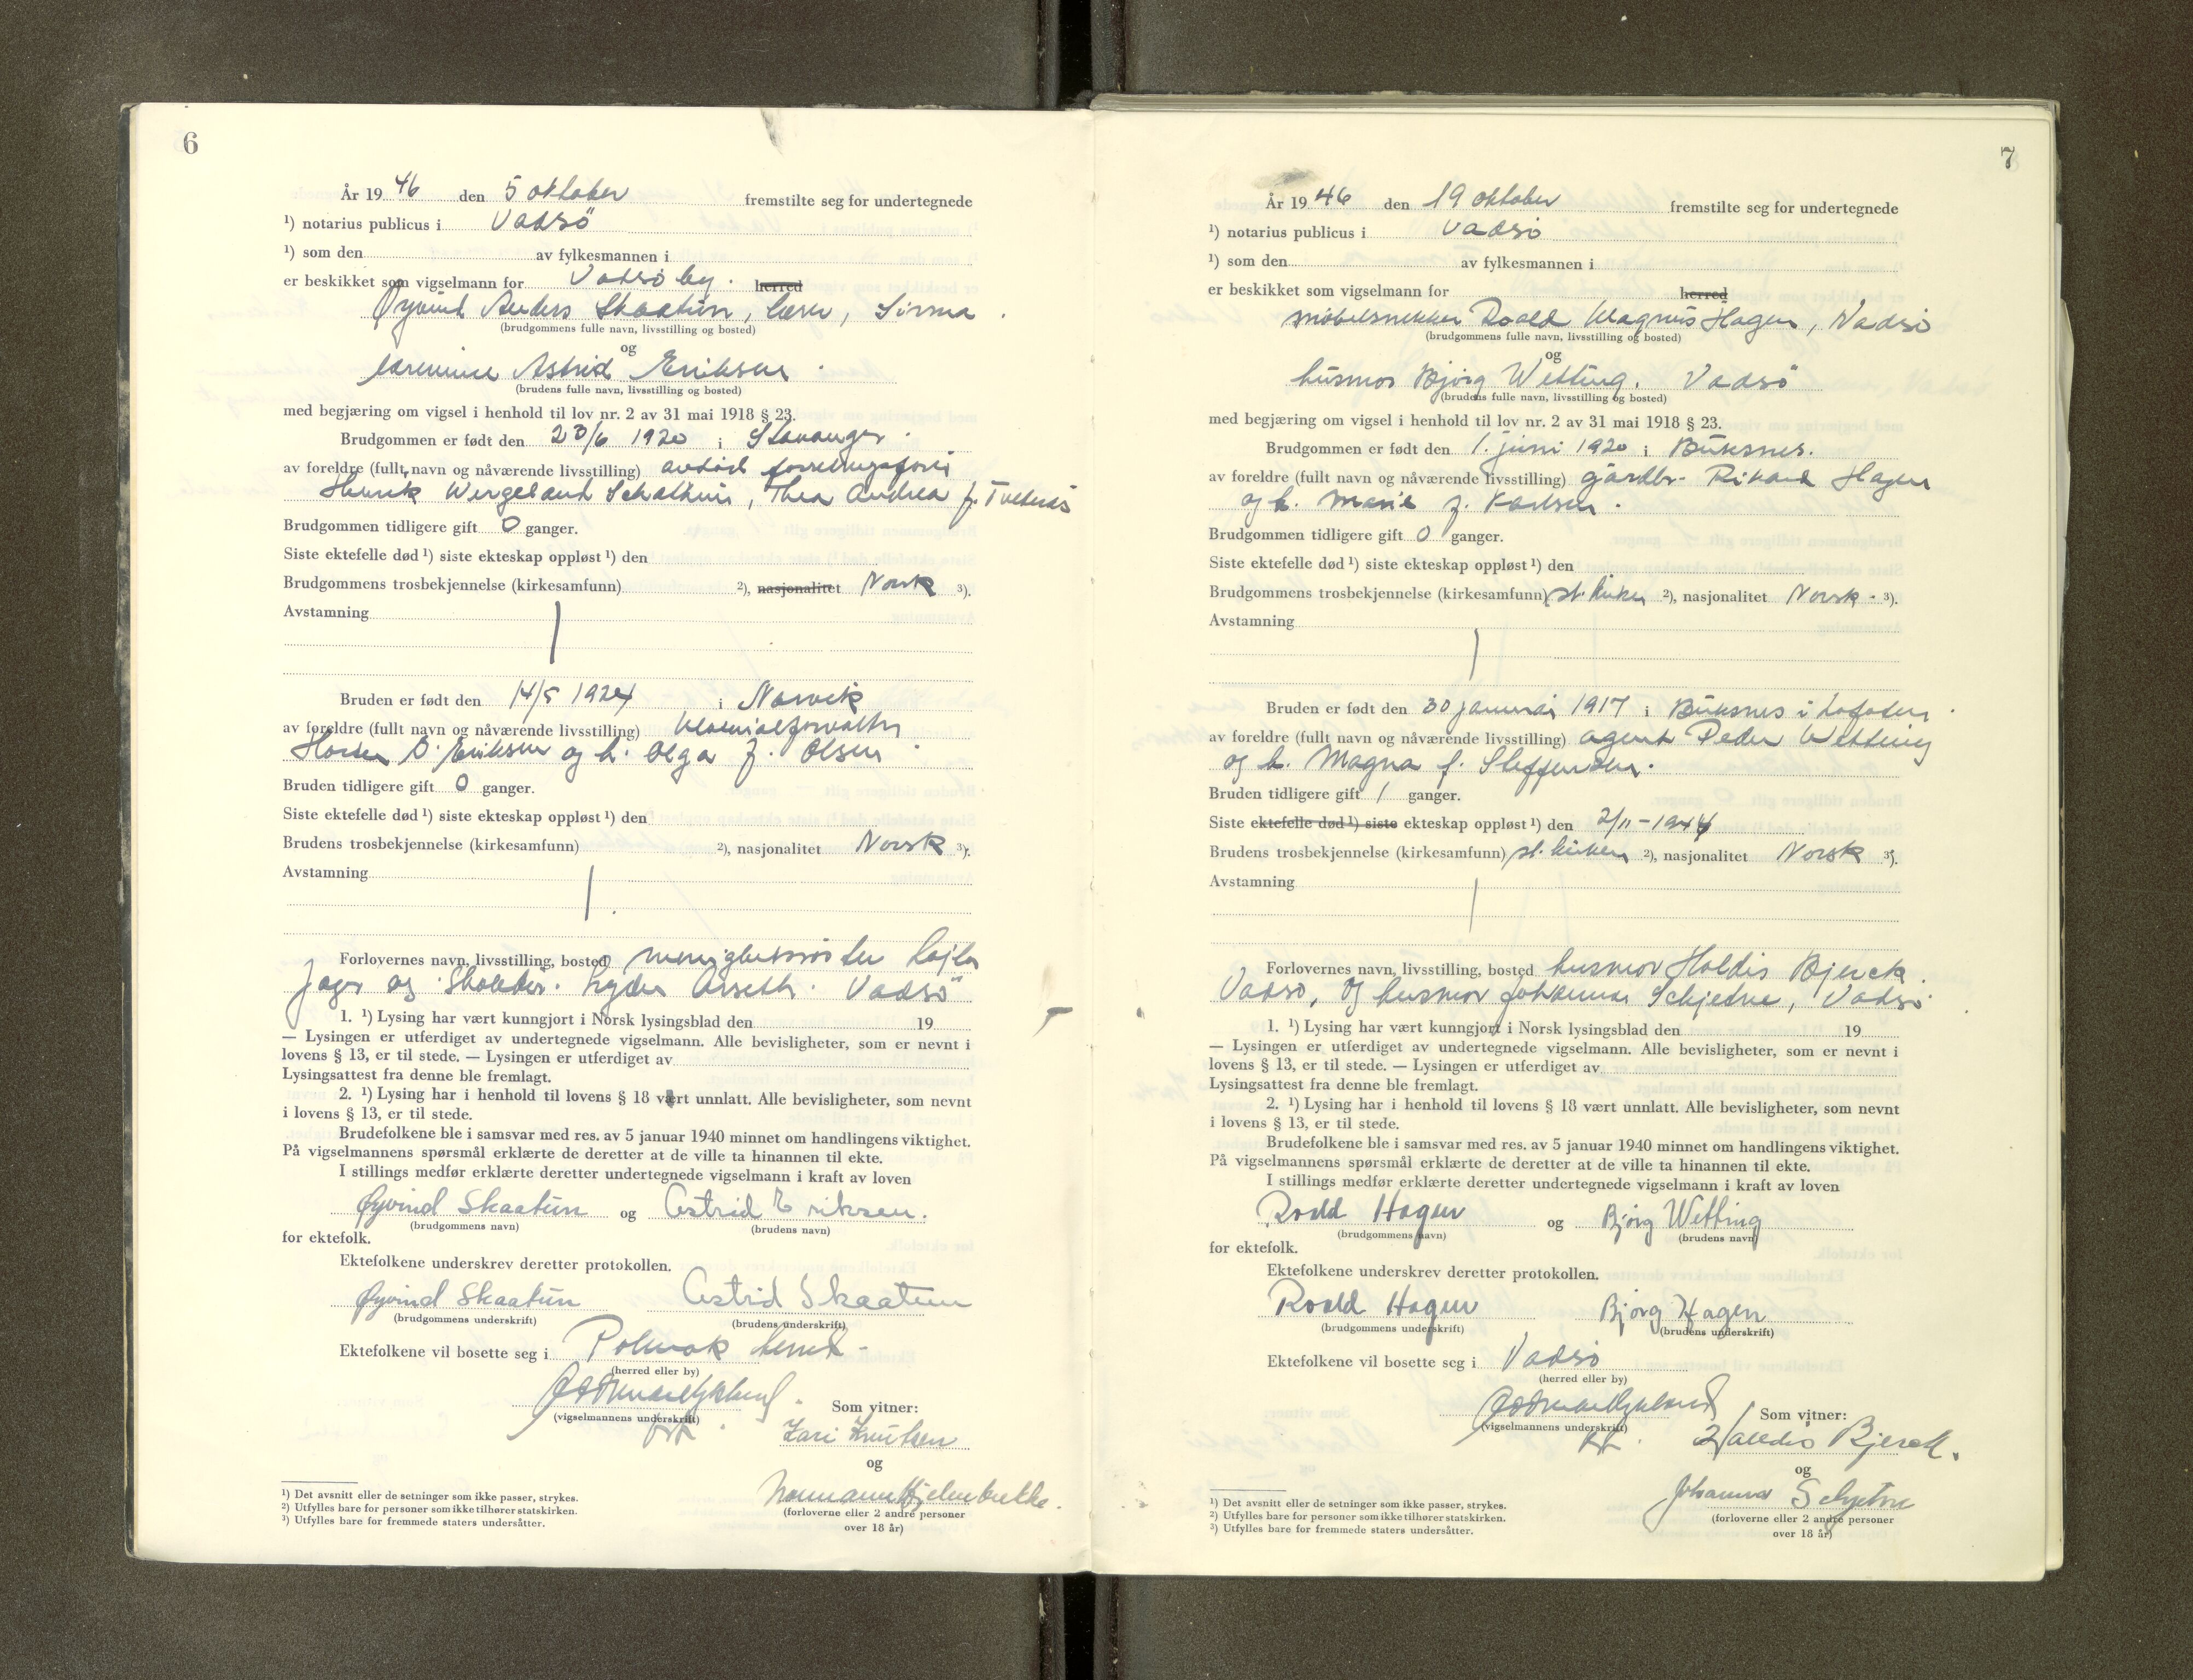 6
År 19 46 den 5 oktober fremstilte seg for undertegnede
¹) notarius publicus i Vadsö
¹) som den av fylkesmannen i
er beskikket som vigselmann for Vadsö by. herred
Øyvind Anders Skaatun, lærer, Sirma.
(brudgommens fulle navn, livsstilling og bosted)
og
lærerinne Astrid Eriksen.
(brudens fulle navn, livsstilling og bosted)
med begjæring om vigsel i henhold til lov nr. 2 av 31 mai 1918 § 23.
Brudgommen er født den 23/6 1920 i Stavanger.
av foreldre (fullt navn og nåværende livsstilling) avdöd
Henrik Wergeland, Thea Andrea f.
Brudgommen tidligere gift 0 ganger.
Siste ektefelle død ¹) siste ekteskap oppløst ¹) den
Brudgommens trosbekjennelse (kirkesamfunn) ²), nasjonalitet Norsk ³).
Avstamning
Bruden er født den 14/5 1924 i Narvik
av foreldre (fullt navn og nåværende livsstilling)
O. Eriksen og h. Olga f. Olsen.
Bruden tidligere gift 0 ganger.
Siste ektefelle død ¹) siste ekteskap oppløst ¹) den
Brudens trosbekjennelse (kirkesamfunn) ²), nasjonalitet Norsk ³).
Avstamning
Forlovernes navn, livsstilling, bosted menighetssöster Lajla
Jager og Vadsö
1. ¹) Lysing har vært kunngjort i Norsk lysingsblad den 19
— Lysingen er utferdiget av undertegnede vigselmann. Alle bevisligheter, som er nevnt i
lovens § 13, er til stede. — Lysingen er utferdiget av
Lysingsattest fra denne ble fremlagt.
2. ¹) Lysing har i henhold til lovens § 18 vært unnlatt. Alle bevisligheter, som nevnt
i lovens § 13, er til stede.
Brudefolkene ble i samsvar med res. av 5 januar 1940 minnet om handlingens viktighet.
På vigselmannens spørsmål erklærte de deretter at de ville ta hinannen til ekte.
I stillings medfør erklærte deretter undertegnede vigselmann i kraft av loven
Øyvind Skaatun og Astrid Eriksen.
(brudgommens navn) (brudens navn)
for ektefolk.
Ektefolkene underskrev deretter protokollen.
Øyvind Skaatun Astrid Skaatun
(brudgommens underskrift) (brudens underskrift)
Ektefolkene vil bosette seg i Polmak herred.
(herred eller by)
(vigselmannens underskrift)
Som vitner:
Kari Knutsen
og
(forloverne eller 2 andre personer
over 18 år)
¹) Det avsnitt eller de setninger som ikke passer, strykes.
²) Utfylles bare for personer som ikke tilhører statskirken.
³) Utfylles bare for fremmede staters undersåtter.
7
År 19 46 den 19 oktober fremstilte seg for undertegnede
¹) notarius publicus i Vadsö
¹) som den av fylkesmannen i
er beskikket som vigselmann for herred
möbelsnekker Roald Magnus Hagen, Vadsö
(brudgommens fulle navn, livsstilling og bosted)
og
husmor Bjørg Wetting. Vadsö
(brudens fulle navn, livsstilling og bosted)
med begjæring om vigsel i henhold til lov nr. 2 av 31 mai 1918 § 23.
Brudgommen er født den 1. juni 1920 i Buksnes.
av foreldre (fullt navn og nåværende livsstilling) gårdbr. Rikard Hagen
og h. Marie f. Karlsen.
Brudgommen tidligere gift 0 ganger.
Siste ektefelle død ¹) siste ekteskap oppløst ¹) den
Brudgommens trosbekjennelse (kirkesamfunn) st. kirken ²), nasjonalitet Norsk. ³).
Avstamning
Bruden er født den 30 januar 1917 i Buksnes i Lofoten.
av foreldre (fullt navn og nåværende livsstilling) agent Peder Wetting
og h. Magna f. Steffensen.
Bruden tidligere gift 1 ganger.
Siste ektefelle død ¹) siste ekteskap oppløst ¹) den 2/11-1944
Brudens trosbekjennelse (kirkesamfunn) st. kirken ²), nasjonalitet Norsk ³).
Avstamning
Forlovernes navn, livsstilling, bosted husmor Haldis Bjerck.
Vadsö, og husmor Johanna Schjetne, Vadsö.
1. ¹) Lysing har vært kunngjort i Norsk lysingsblad den 19
— Lysingen er utferdiget av undertegnede vigselmann. Alle bevisligheter, som er nevnt i
lovens § 13, er til stede. — Lysingen er utferdiget av
Lysingsattest fra denne ble fremlagt.
2. ¹) Lysing har i henhold til lovens § 18 vært unnlatt. Alle bevisligheter, som nevnt
i lovens § 13, er til stede.
Brudefolkene ble i samsvar med res. av 5 januar 1940 minnet om handlingens viktighet.
På vigselmannens spørsmål erklærte de deretter at de ville ta hinannen til ekte.
I stillings medfør erklærte deretter undertegnede vigselmann i kraft av loven
Roald Hagen og Bjørg Wetting
(brudgommens navn) (brudens navn)
for ektefolk.
Ektefolkene underskrev deretter protokollen.
Roald Hagen Bjørg Hagen
(brudgommens underskrift) (brudens underskrift)
Ektefolkene vil bosette seg i Vadsö
(herred eller by)
(vigselmannens underskrift)
Som vitner:
Halldis Bjerck.
og
Johanna Schjetne
(forloverne eller 2 andre personer
over 18 år)
¹) Det avsnitt eller de setninger som ikke passer, strykes.
²) Utfylles bare for personer som ikke tilhører statskirken.
³) Utfylles bare for fremmede staters undersåtter.